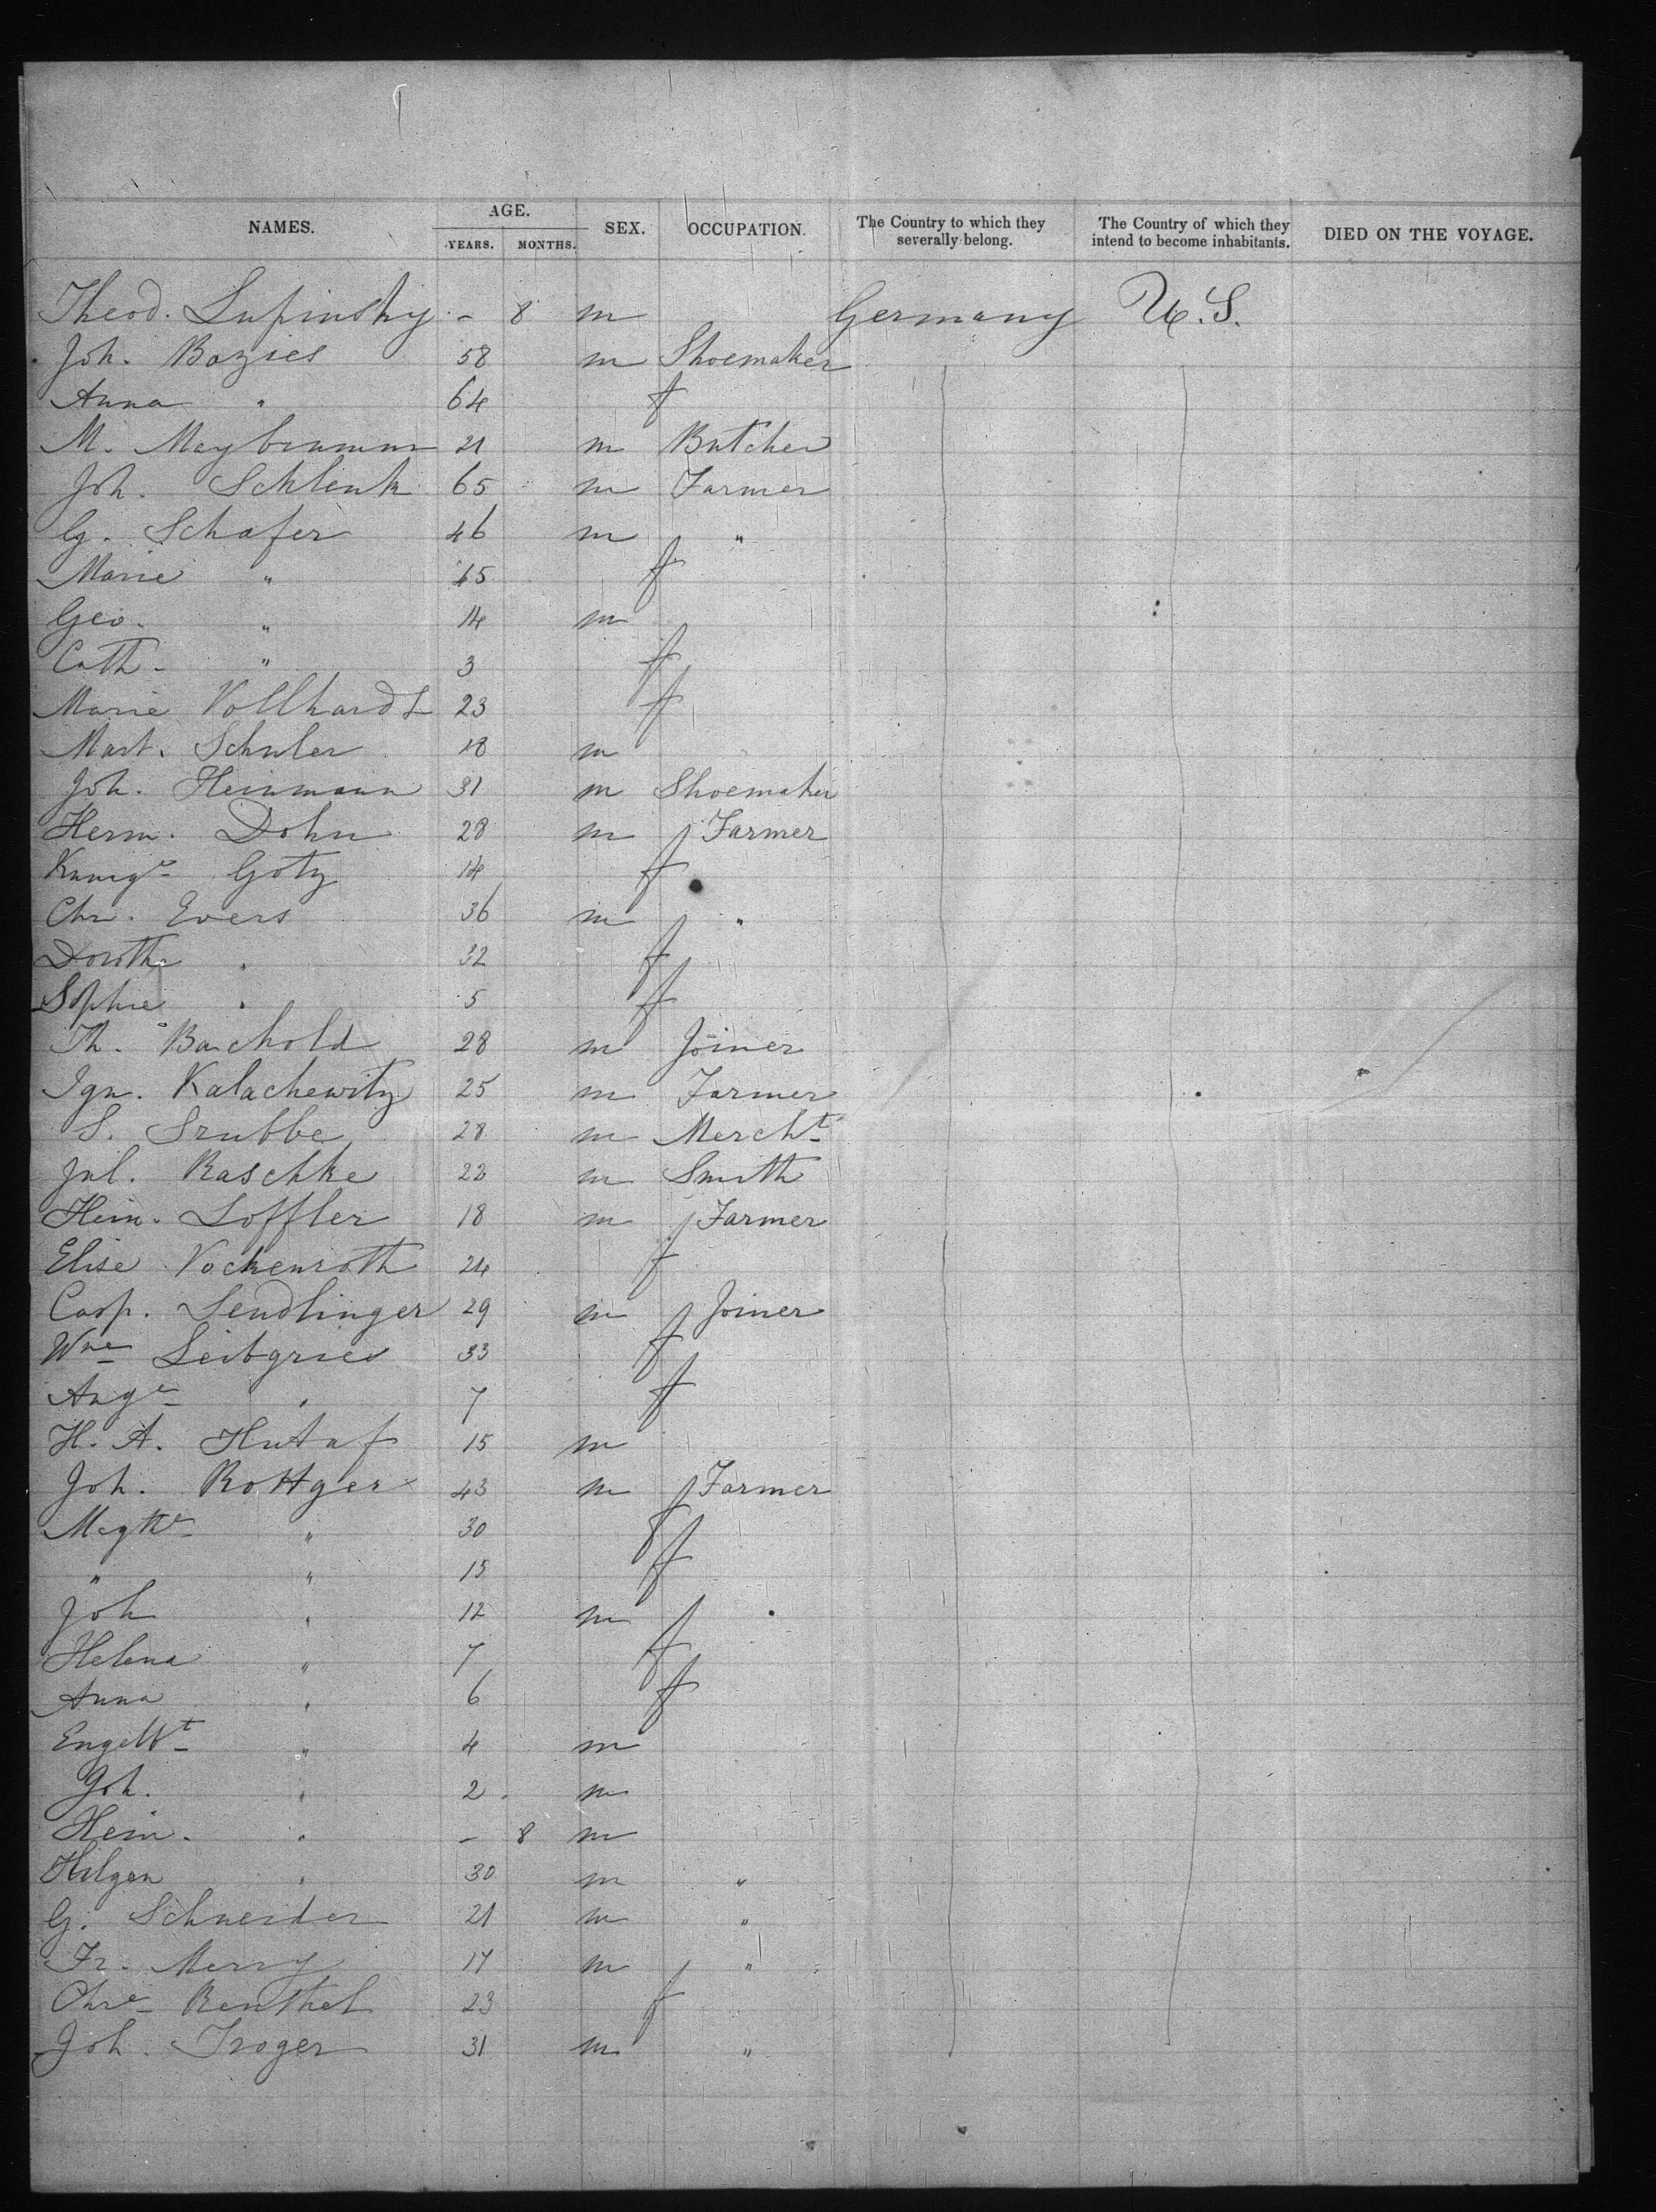 NAMES. AGE. SEX. OCCUPATION. The Country to which they severally belong. The Country of which they intend to become inhabitants. DIED ON THE VOYAGE.
YEARS. MONTHS.
Theod. Lupinsky - 8 m Germany U.S.
Joh. Bozies 58 m Shoemaker
Anna " 64 f
M. Maybrumm 21 m Butcher
Joh. Schlenk 65 m Farmer
G. Schafer 46 m "
Marie " 45 f
Geo. " 14 m
Cath. " 3 f
Marie Vollhardt 23 f
Mart. Schuler 18 m
Joh. Heinmann 31 m Shoemaker
Herm. Dohn 28 m Farmer
Kunigᵉ Gotz 14 f
Chr. Evers 36 m "
Dorothe " 32 f
Sophie " 5 f
Th. Barchold 28 m Joiner
Ign. Kalachewitz 25 m Farmer
S. Srubbe 28 m Mercht
Jul. Raschke 22 m Smith
Hein. Loffler 18 m Farmer
Elise Vockenroth 24 f
Casp. Sendlinger 29 m Joiner
Wne Leibgries 33 f
Auge " 7 f
H. A. Hutaf 15 m
Joh. Rottger 43 m Farmer
Mgthe " 30 f
" " 15 f
Joh " 12 m
Helena " 7 f
Anna " 6 f
Engelbt " 4 m
Joh. " 2 m
Hein. " - 8 m
Hilgen " 30 m "
G. Schneider 21 m "
Fr. Merry 17 m "
Chre Renthel 23 f
Joh. Troger 31 m "